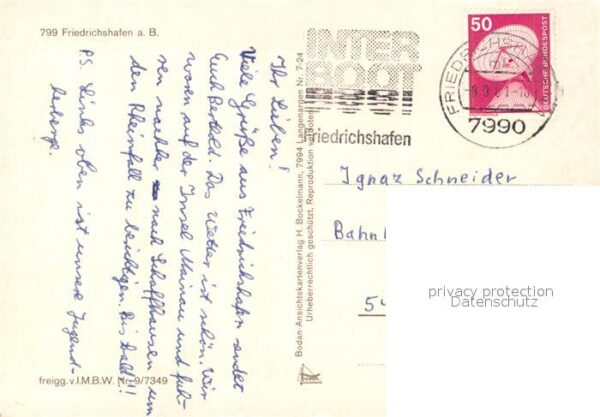 799 Friedrichshafen a. B.
Ihr Lieben!
Viele Grüße aus Friedrichshafen sendet
Euch Das Wetter ist schön. Wir
waren auf der Insel Mainau und fah-
ren nachher nach Schaffhausen um
den Rheinfall zu besichtigen. Bis bald!!
P.S. Links oben ist unsere Jugend-
herberge.
freigg. v. I.M.B.W. Nr. 9/7349
Bodan-Ansichtskartenverlag H. Bockelmann, 7994 Langenargen Nr. 7-24
Urheberrechtlich geschützt, Reproduktion verboten
INTER
BOOT
Friedrichshafen
50
DEUTSCHE BUNDESPOST
FRIEDRICHSHAFEN
7990
Ignaz Schneider
Bahnh
54
privacy protection
Datenschutz